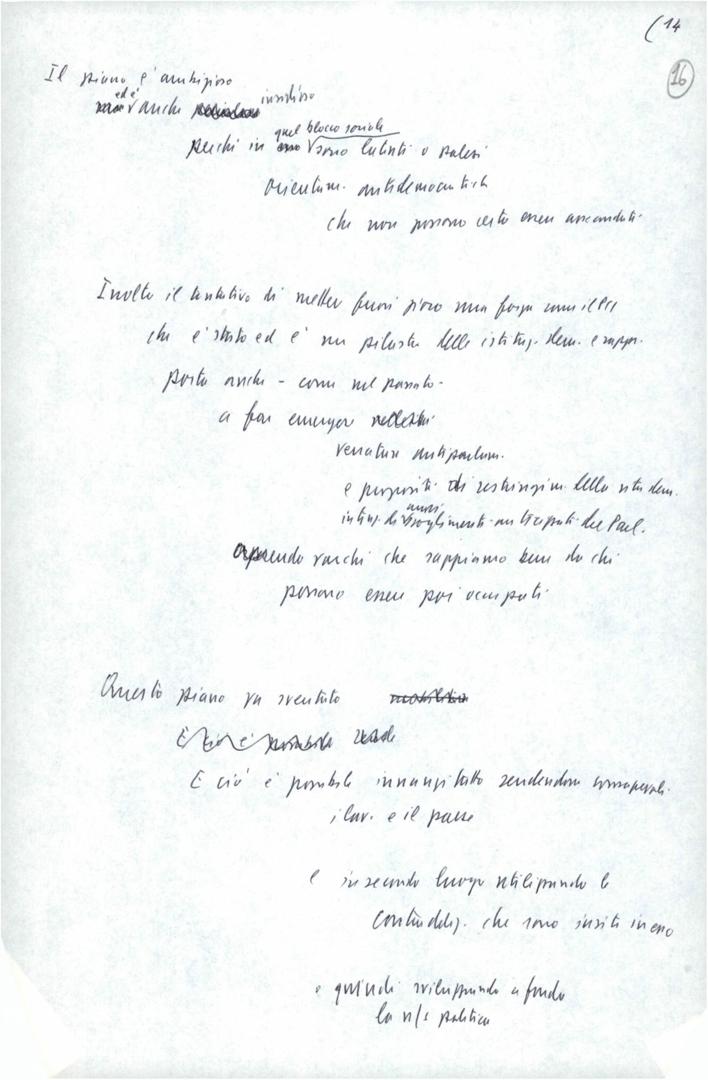 (14
16
Il piano è ambizioso
ed è
ma anche insidioso
perché in quel blocco sociale sono latenti o palesi
orientam. antidemocratici
che non possono certo essere assecondati.
Inoltre il tentativo di metter fuori gioco una forza come il PCI
che è stato ed è un pilastro delle istituz. dem. e rappr.
porta anche - come nel passato -
a far emergere
venature antiparlam.
e propositi di restringim. della vita dem.
anni
intenz. di scioglimenti anticipati del Parl.
aprendo varchi che sappiamo bene da chi
possono essere poi occupati
Questo piano va sventato
E ciò è possibile
E ciò è possibile innanzitutto rendendone consapevoli
i lav. e il paese
e in secondo luogo utilizzando le
contraddiz. che sono insite in esso
e quindi sviluppando a fondo
la n/s politica